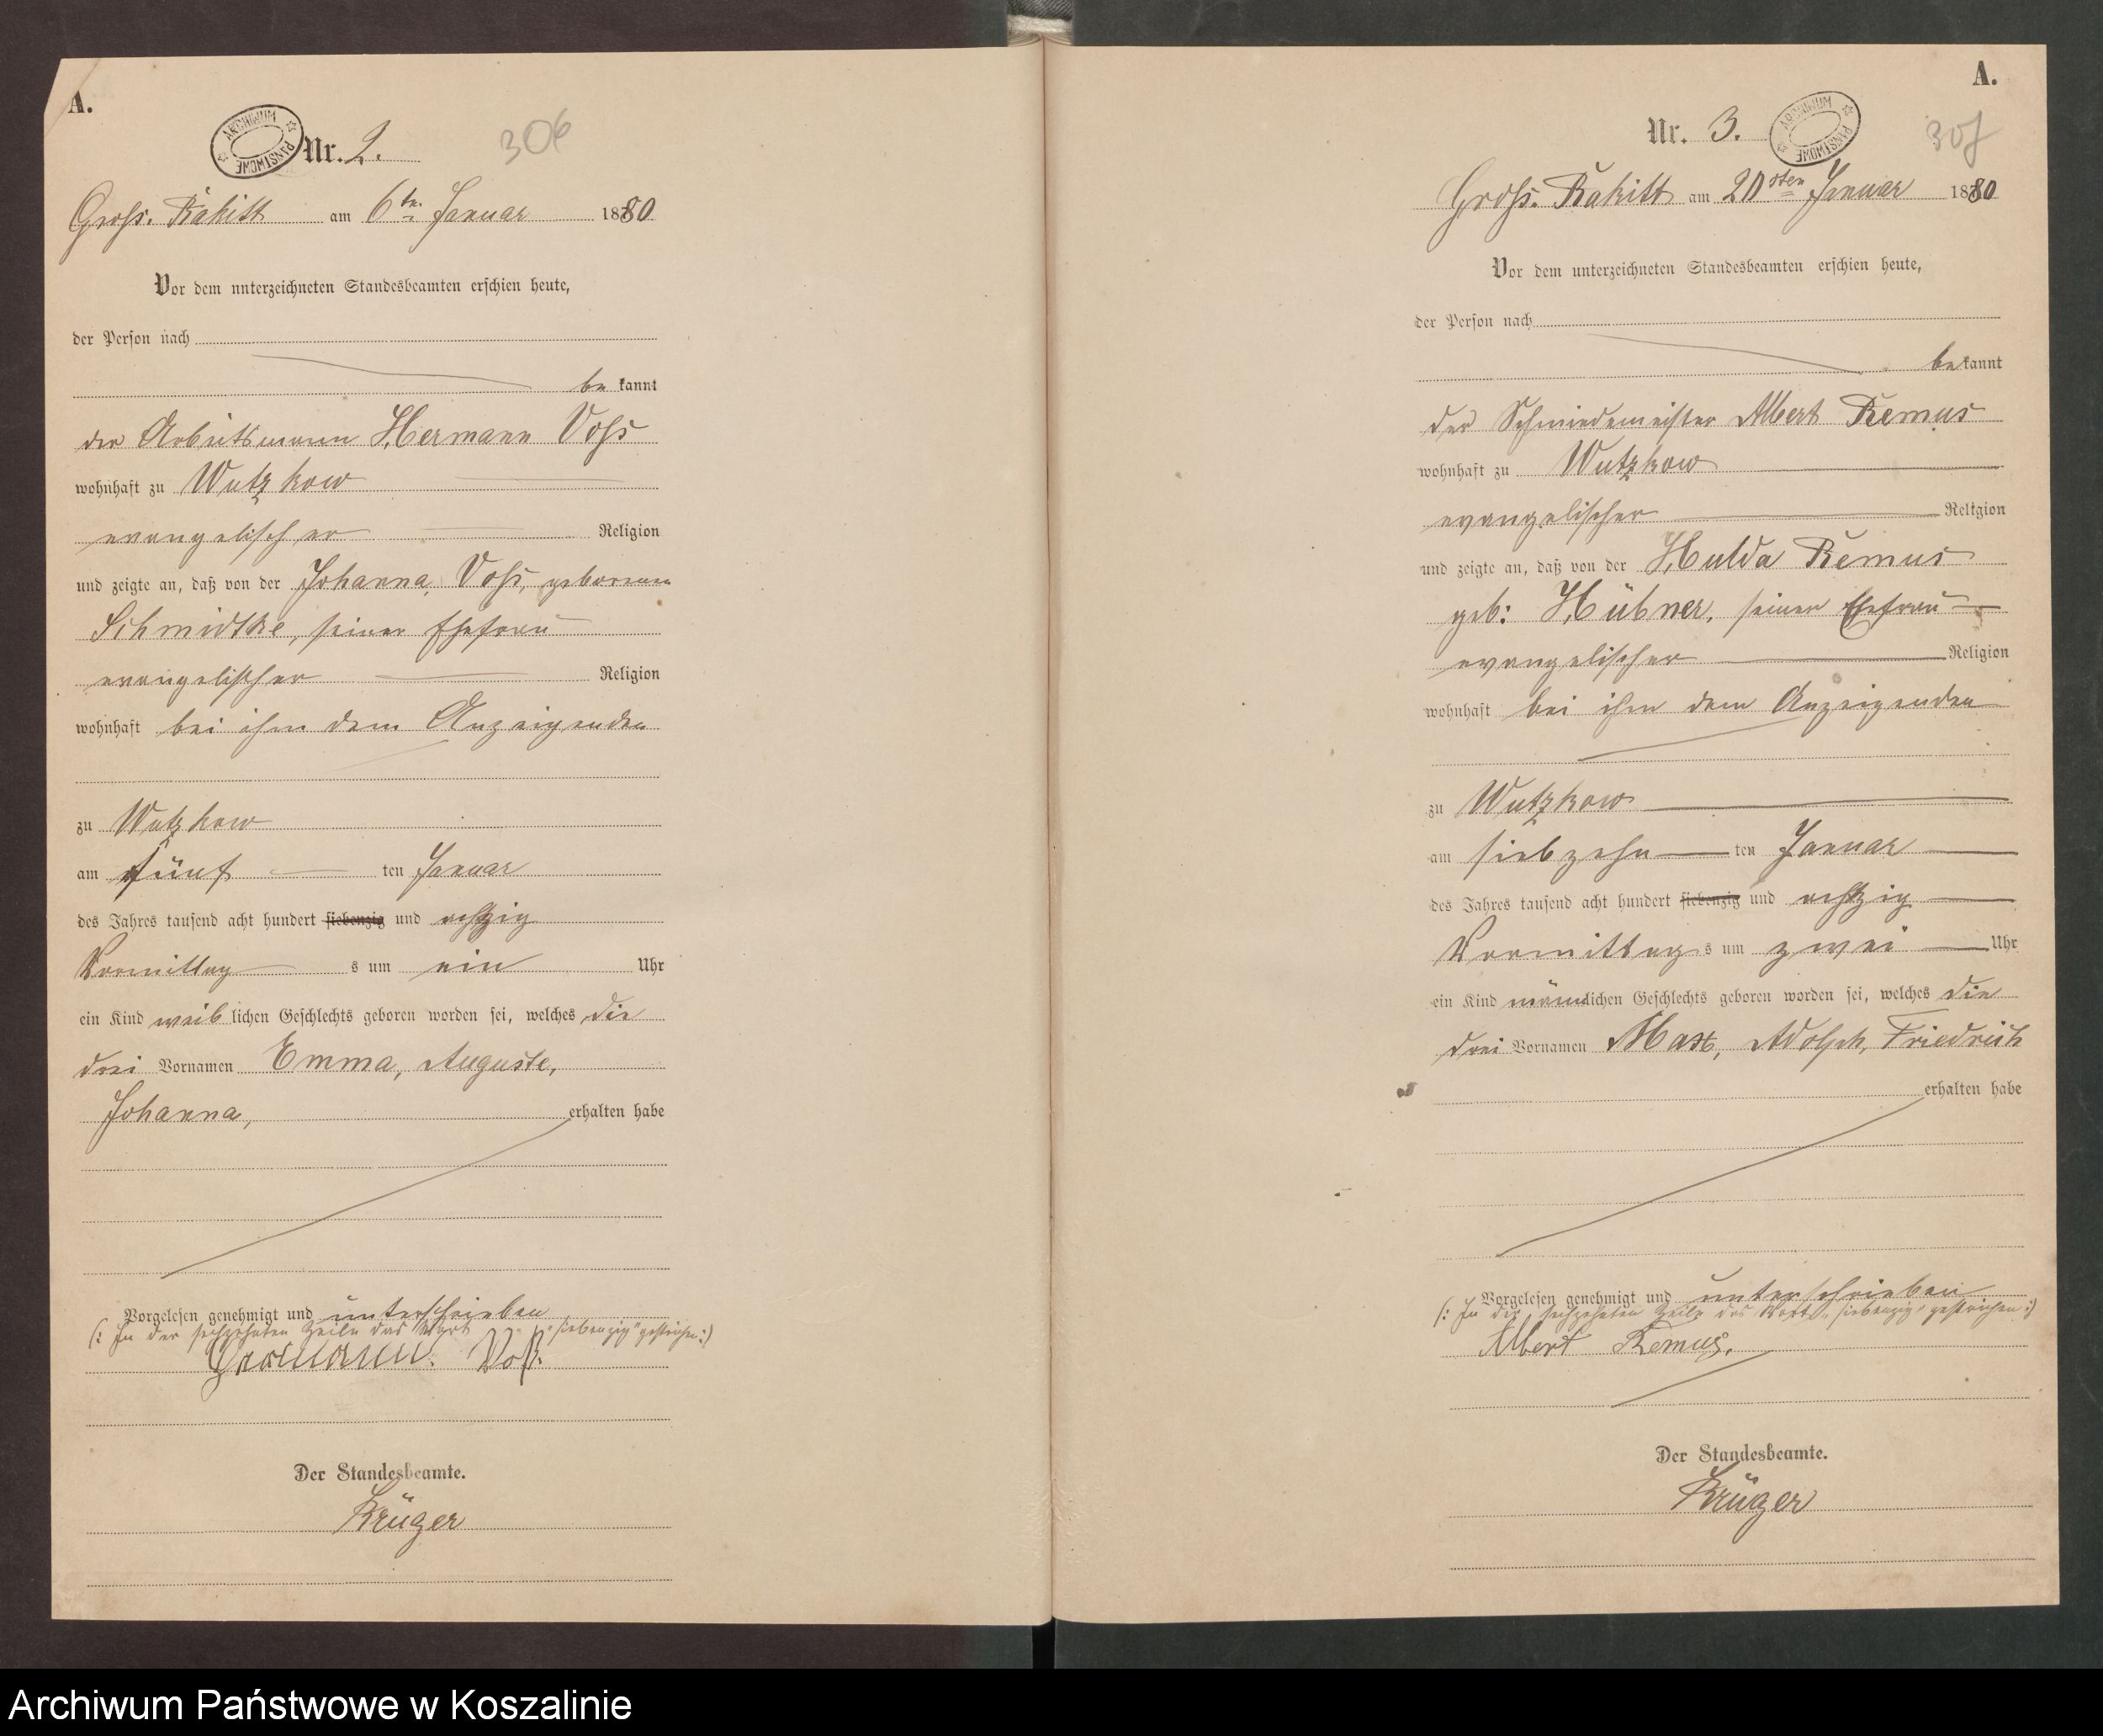 A.
ARCHIWUM PAŃSTWOWE
Nr. 2.
306
Gross. Rakitt am 6tn. Januar 1880
Vor dem unterzeichneten Standesbeamten erschien heute,
der Person nach
be kannt
der Arbeitsmann Hermann Voss
wohnhaft zu Wutzkow
evangelischer Religion
und zeigte an, daß von der Johanna, Voss, geborenen
Schmidtke, seiner Ehefrau
evangelischer Religion
wohnhaft bei ihm dem Anzeigenden
zu Wutzkow
am fünf ten Januar
des Jahres tausend acht hundert siebenzig und achtzig
Vormittag s um ein Uhr
ein Kind weib lichen Geschlechts geboren worden sei, welches die
drei Vornamen Emma, Auguste,
Johanna, erhalten habe
Vorgelesen genehmigt und unterschrieben
(: In der sechzehnten Zeile das Wort „siebenzig" gestrichen :)
Hermann. Voß.
Der Standesbeamte.
Krüger
A.
Nr. 3.
ARCHIWUM PAŃSTWOWE
307
Gross. Rakitt am 20sten Januar 1880
Vor dem unterzeichneten Standesbeamten erschien heute,
der Person nach
be kannt
der Schmiedemeister Albert Remus
wohnhaft zu Wutzkow
evangelischer Religion
und zeigte an, daß von der Hulda Remus
geb: Hübner, seiner Ehefrau
evangelischer Religion
wohnhaft bei ihm dem Anzeigenden
zu Wutzkow
am siebzehn ten Januar
des Jahres tausend acht hundert siebenzig und achtzig
Vormittag s um zwei Uhr
ein Kind männlichen Geschlechts geboren worden sei, welches die
drei Vornamen Max, Adolph, Friedrich
erhalten habe
Vorgelesen genehmigt und unterschrieben
(: In der sechzehnten Zeile das Wort „siebenzig" gestrichen :)
Albert Remus.
Der Standesbeamte.
Krüger
Archiwum Państwowe w Koszalinie